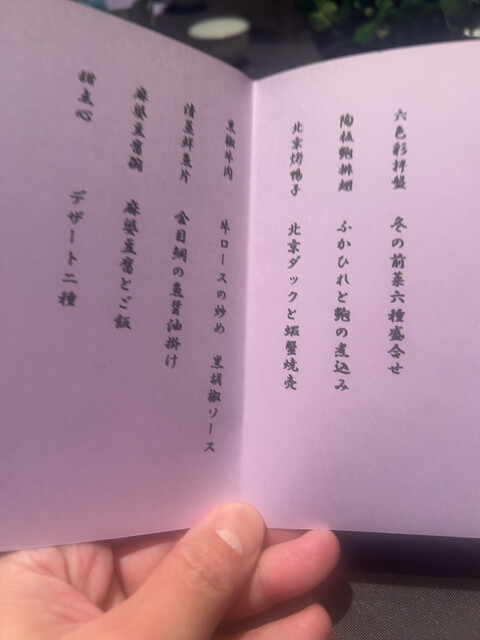 六色彩拌盤 冬の前菜六種盛合せ
陶板鮑排翅 ふかひれと鮑の煮込み
北京烤鴨子 北京ダックと蝦蟹焼売
黒椒牛肉 牛ロースの炒め 黒胡椒ソース
清蒸鮮魚片 金目鯛の魚醤油掛け
麻婆豆腐 麻婆豆腐とご飯
甜点心 デザート二種